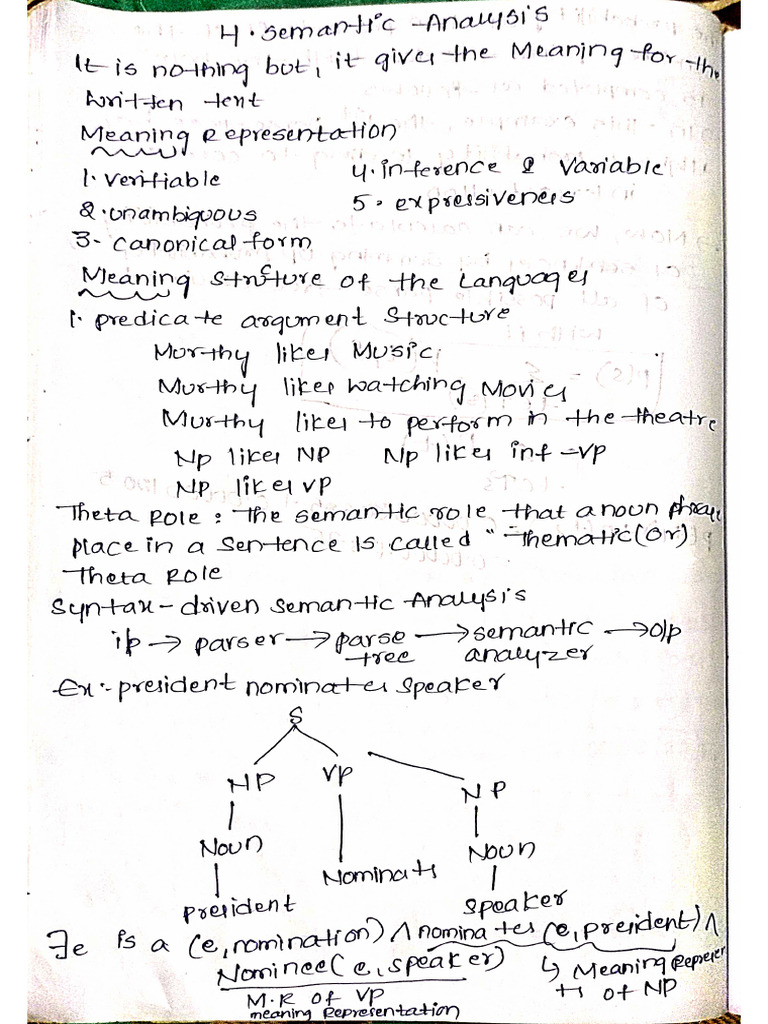 4. Semantic Analysis
It is nothing but, it gives the Meaning for the
written text
Meaning Representation
1. Verifiable
2. Unambiquous
3- Canonical form
4. inference & Variable
5. expressiveness
Meaning Structure of the Languages
1. predicate argument Structure
Murthy likes Music
Murthy likes watching Movies
Murthy likes to perform in the theatre
Np likes NP Np likes inf-VP
NP likes VP
Theta Role : The semantic role that a noun phrase
place in a Sentence is called "Thematic (or)
Theta Role
Syntax-driven Semantic Analysis
i/p → parser → parse tree → semantic analyzer → o/p
Ex:- president nominates speaker
S
NP VP NP
Noun Nominats Noun
president speaker
∃e is a (e, nomination) ∧ nominates (e, president) ∧
Nominee (e, speaker) ↳ Meaning Represen
M.R of VP ts of NP
meaning Representation